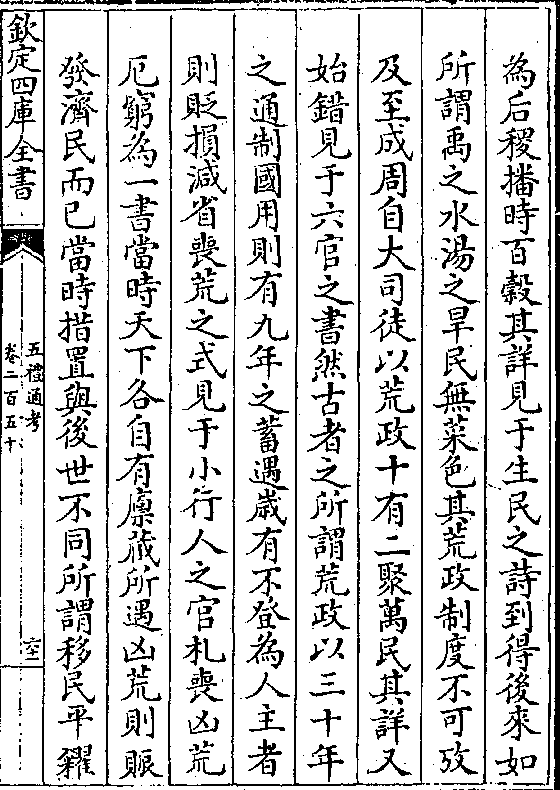 為后稷播時百穀其詳見于生民之詩到得後來如
所謂禹之水湯之旱民無菜色其荒政制度不可攷
及至成周自大司徒以荒政十有二聚萬民其詳又
始錯見于六官之書然古者之所謂荒政以三十年
之通制國用則有九年之蓄遇歲有不登為人主者
則貶損減省喪荒之式見于小行人之官札喪凶荒
厄窮為一書當時天下各自有廪藏所遇凶荒則賑
發濟民而已當時措置與後世不同所謂移民平糴
欽定四庫全書
五禮通考
卷二百五十
六二